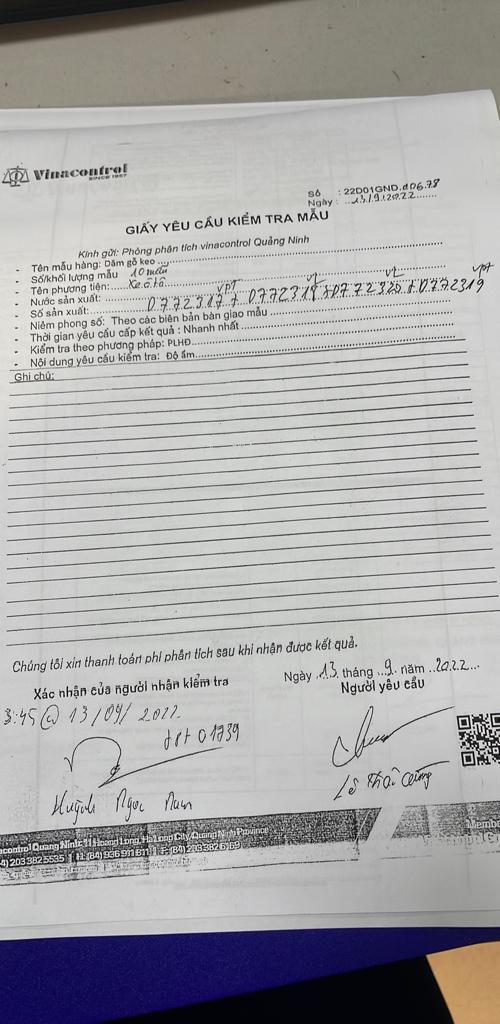 Vinacontrol
SINCE 1957
Số : 22D01GND.d06.78
Ngày : ..13./.9./.2022.......
GIẤY YÊU CẦU KIỂM TRA MẪU
Kính gửi: Phòng phân tích vinacontrol Quảng Ninh
- Tên mẫu hàng: Dăm gỗ keo
- Số/khối lượng mẫu 10 mẫu
- Tên phương tiện: Xe ô tô
- Nước sản xuất:
VPT VL VL VPT
- Số sản xuất: 0772317 + 0772318 + 0772320 + 0772319
- Niêm phong số: Theo các biên bản bàn giao mẫu
- Thời gian yêu cầu cấp kết quả : Nhanh nhất
- Kiểm tra theo phương pháp: PLHĐ
- Nội dung yêu cầu kiểm tra: Độ ẩm
Ghi chú:
Chúng tôi xin thanh toán phí phân tích sau khi nhận được kết quả.
Ngày .13. tháng ..9. năm ..2022...
Xác nhận của người nhận kiểm tra
Người yêu cầu
3:45 @ 13/09/2022.
01739
Huỳnh Ngọc Nam
Lê Thái Cường
acontrol Quang Ninh: 11 Hoang Long, Ha Long City, Quang Ninh Province
4) 203 382 5535 | H: (84) 936 911 811 | F: (84) 203 382 6169